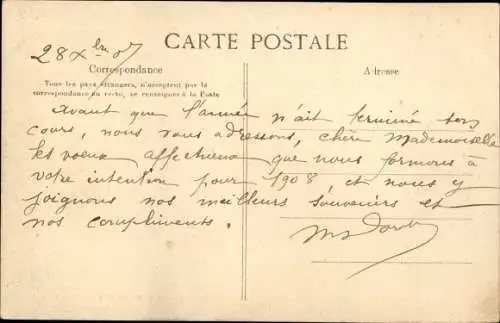 28 Xbre 07
CARTE POSTALE
Correspondance
Adresse
Tous les pays étrangers, n'acceptent par la
correspondance au recto, se renseigner à la Poste
Avant que l'année n'ait terminé son
cours, nous vous adressons, chère Mademoiselle
les voeux affectueux que nous formons à
votre intention pour 1908, et nous y
joignons nos meilleurs souvenirs et
nos compliments.